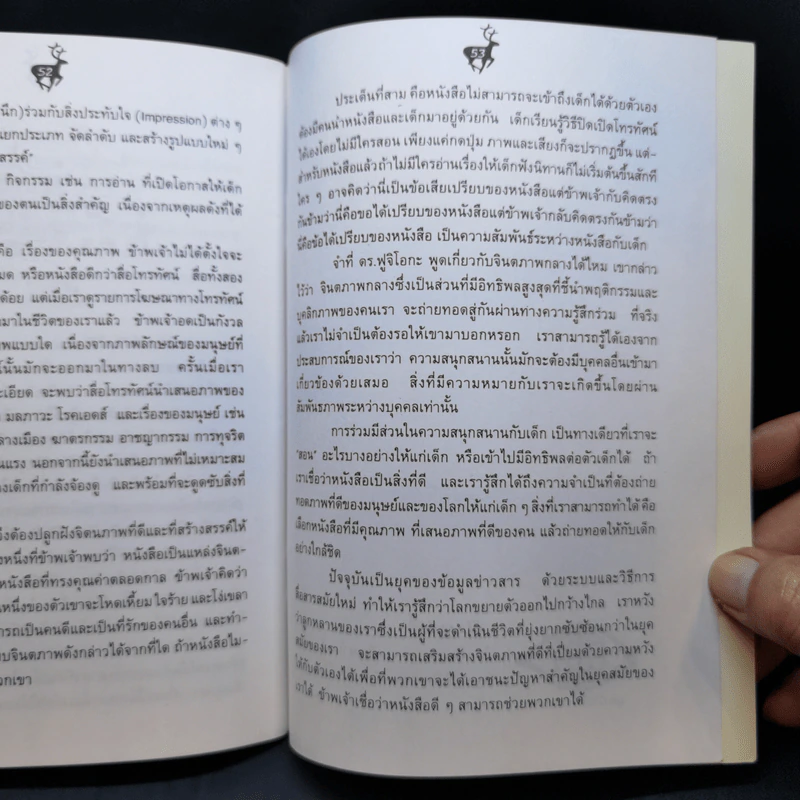 52
นึก)ร่วมกับสิ่งประทับใจ (Impression) ต่าง ๆ
แยกประเภท จัดลำดับ และสร้างรูปแบบใหม่ ๆ
สรรค์"
กิจกรรม เช่น การอ่าน ที่เปิดโอกาสให้เด็ก
ของตนเป็นสิ่งสำคัญ เนื่องจากเหตุผลดังที่ได้
คือ เรื่องของคุณภาพ ข้าพเจ้าไม่ได้ตั้งใจจะ
มด หรือหนังสือดีกว่าสื่อโทรทัศน์ สื่อทั้งสอง
ด้อย แต่เมื่อเราดูรายการโฆษณาทางโทรทัศน์
ามาในชีวิตของเราแล้ว ข้าพเจ้าอดเป็นกังวล
พแบบใด เนื่องจากภาพลักษณ์ของมนุษย์ที่
น์นั้นมักจะออกมาในทางลบ ครั้นเมื่อเรา
ะเอียด จะพบว่าสื่อโทรทัศน์นำเสนอภาพของ
มลภาวะ โรคเอดส์ และเรื่องของมนุษย์ เช่น
ลางเมือง ฆาตรกรรม อาชญากรรม การทุจริต
นแรง นอกจากนี้ยังนำเสนอภาพที่ไม่เหมาะสม
งเด็กที่กำลังจ้องดู และพร้อมที่จะดูดซับสิ่งที่
ึงต้องปลูกฝังจิตนภาพที่ดีและที่สร้างสรรค์ให้
งหนึ่งที่ข้าพเจ้าพบว่า หนังสือเป็นแหล่งจินต-
หนังสือที่ทรงคุณค่าตลอดกาล ข้าพเจ้าคิดว่า
หนึ่งของตัวเขาจะโหดเหี้ยม ใจร้าย และโง่เขลา
ารถเป็นคนดีและเป็นที่รักของคนอื่น และทำ-
บจินตภาพดังกล่าวได้จากที่ใด ถ้าหนังสือไม่-
วกเขา
53
ประเด็นที่สาม คือหนังสือไม่สามารถจะเข้าถึงเด็กได้ด้วยตัวเอง
ต้องมีคนนำหนังสือและเด็กมาอยู่ด้วยกัน เด็กเรียนรู้วิธีปิดเปิดโทรทัศน์
ได้เองโดยไม่มีใครสอน เพียงแค่กดปุ่ม ภาพและเสียงก็จะปรากฏขึ้น แต่-
สำหรับหนังสือแล้วถ้าไม่มีใครอ่านเรื่องให้เด็กฟังนิทานก็ไม่เริ่มต้นขึ้นสักที
ใคร ๆ อาจคิดว่านี่เป็นข้อเสียเปรียบของหนังสือแต่ข้าพเจ้ากับคิดตรง
กันข้ามว่านี่คือขอได้เปรียบของหนังสือแต่ข้าพเจ้ากลับคิดตรงกันข้ามว่า
นี่คือข้อได้เปรียบของหนังสือ เป็นความสัมพันธ์ระหว่างหนังสือกับเด็ก
จำที่ ดร.ฟูจิโอกะ พูดเกี่ยวกับจินตภาพกลางได้ไหม เขากล่าว
ไว้ว่า จินตภาพกลางซึ่งเป็นส่วนที่มีอิทธิพลสูงสุดที่ชี้นำพฤติกรรมและ
บุคลิกภาพของคนเรา จะถ่ายทอดสู่กันผ่านทางความรู้สึกร่วม ที่จริง
แล้วเราไม่จำเป็นต้องรอให้เขามาบอกหรอก เราสามารถรู้ได้เองจาก
ประสบการณ์ของเราว่า ความสนุกสนานนั้นมักจะต้องมีบุคคลอื่นเข้ามา
เกี่ยวข้องด้วยเสมอ สิ่งที่มีความหมายกับเราจะเกิดขึ้นโดยผ่าน
สัมพันธภาพระหว่างบุคคลเท่านั้น
การร่วมมีส่วนในความสนุกสนานกับเด็ก เป็นทางเดียวที่เราจะ
"สอน" อะไรบางอย่างให้แก่เด็ก หรือเข้าไปมีอิทธิพลต่อตัวเด็กได้ ถ้า
เราเชื่อว่าหนังสือเป็นสิ่งที่ดี และเรารู้สึกได้ถึงความจำเป็นที่ต้องถ่าย
ทอดภาพที่ดีของมนุษย์และของโลกให้แก่เด็ก ๆ สิ่งที่เราสามารถทำได้ คือ
เลือกหนังสือที่มีคุณภาพ ที่เสนอภาพที่ดีของคน แล้วถ่ายทอดให้กับเด็ก
อย่างใกล้ชิด
ปัจจุบันเป็นยุคของข้อมูลข่าวสาร ด้วยระบบและวิธีการ
สื่อสารสมัยใหม่ ทำให้เรารู้สึกว่าโลกขยายตัวออกไปกว้างไกล เราหวัง
ว่าลูกหลานของเราซึ่งเป็นผู้ที่จะดำเนินชีวิตที่ยุ่งยากซับซ้อนกว่าในยุค
สมัยของเรา จะสามารถเสริมสร้างจินตภาพที่ดีที่เปี่ยมด้วยความหวัง
ให้กับตัวเองได้เพื่อที่พวกเขาจะได้เอาชนะปัญหาสำคัญในยุคสมัยของ
เขาได้ ข้าพเจ้าเชื่อว่าหนังสือดี ๆ สามารถช่วยพวกเขาได้